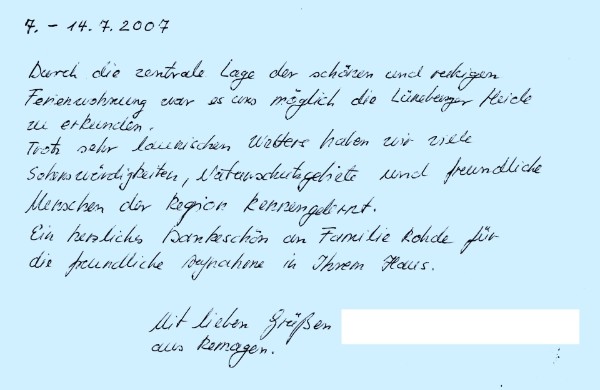 7. – 14.7.2007
Durch die zentrale Lage der schönen und ruhigen
Ferienwohnung war es uns möglich die Lüneburger Heide
zu erkunden.
Trotz sehr launischen Wetters haben wir viele
Sehenswürdigkeiten, Naturschutzgebiete und freundliche
Menschen der Region kennengelernt.
Ein herzliches Dankeschön an Familie Rohde für
die freundliche Aufnahme in Ihrem Haus.
Mit lieben Grüßen
aus Remagen.